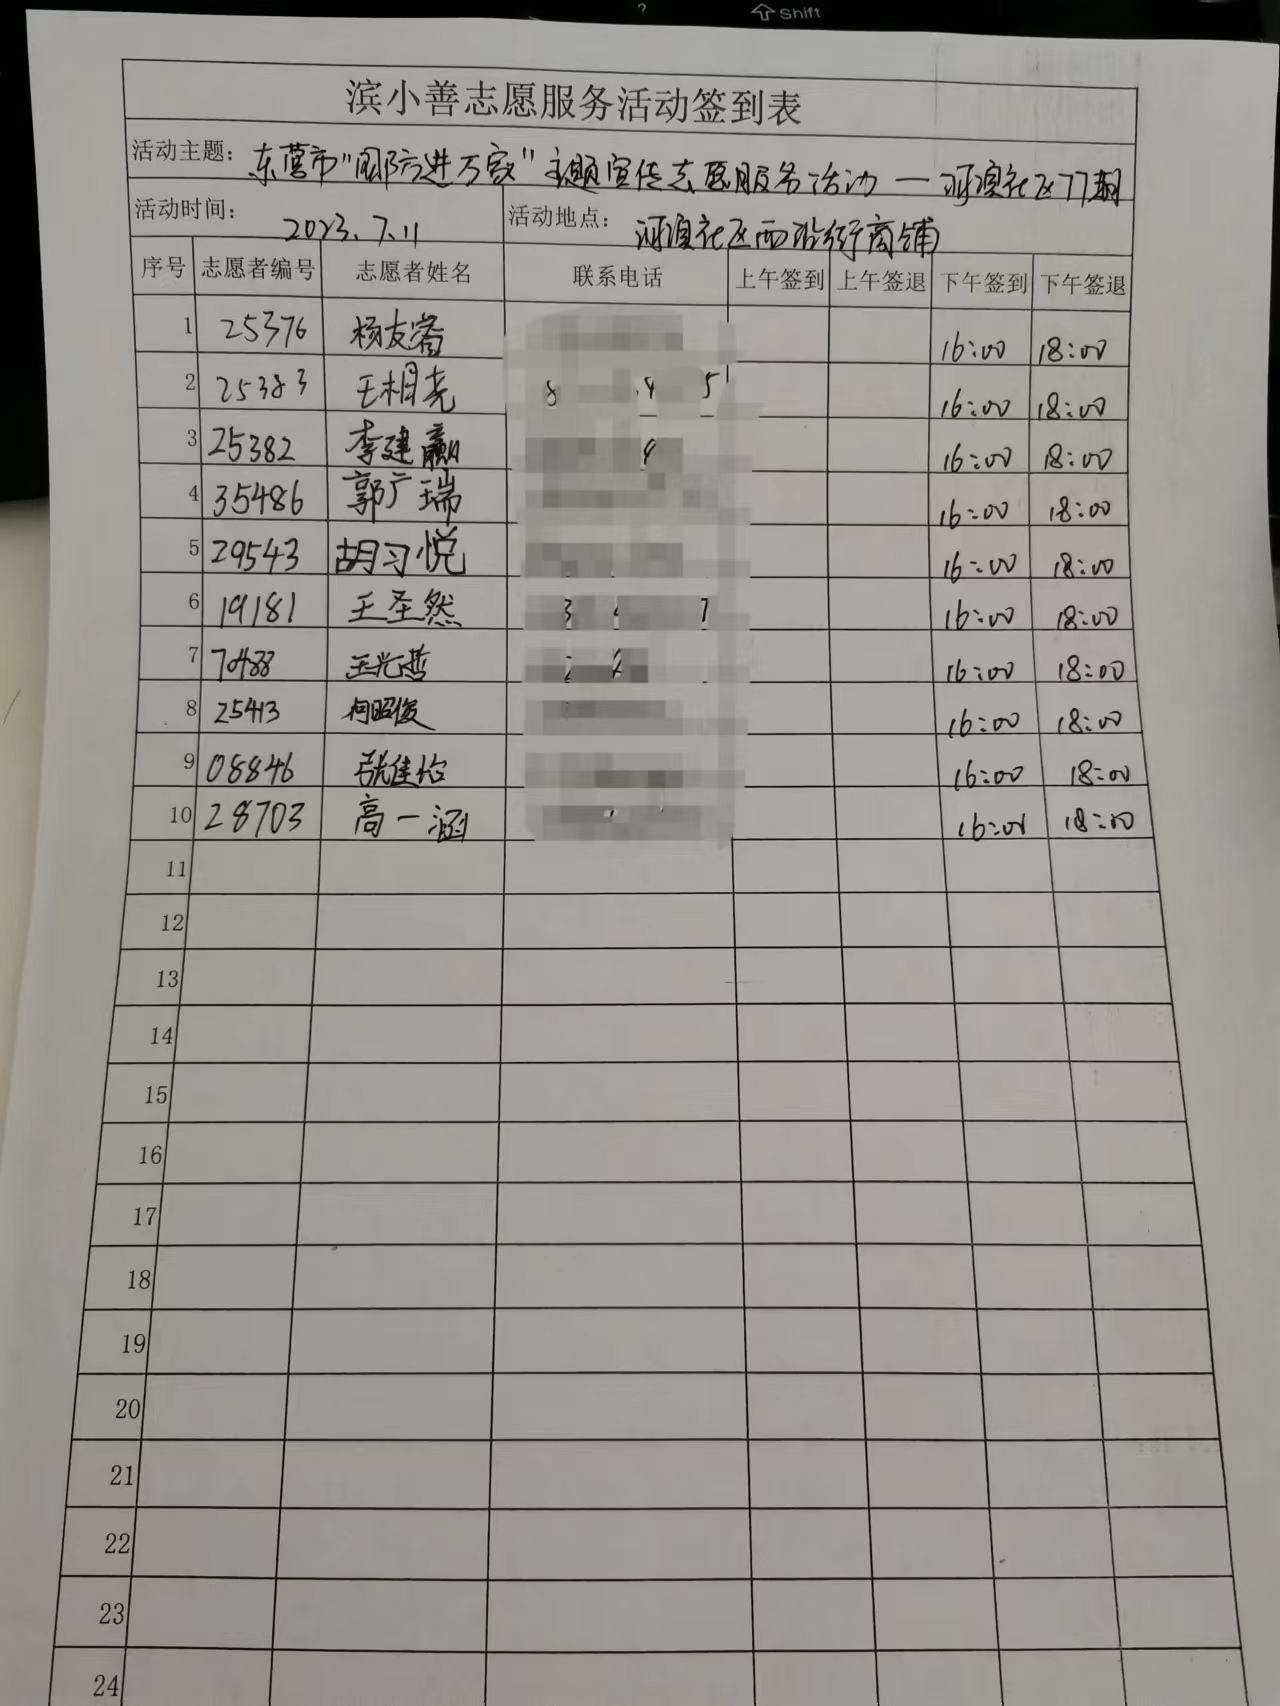 Shift
滨小善志愿服务活动签到表
活动主题：东营市"国防进万家"主题宣传志愿服务活动—河滨社区
活动时间： 2023.7.11 活动地点： 河滨社区西沿街商铺
序号 志愿者编号 志愿者姓名 联系电话 上午签到 上午签退 下午签到 下午签退
1 25376 杨友 16:00 18:00
2 25383 王相尧 16:00 18:00
3 25382 李建赢 16:00 18:00
4 35486 郭广瑞 16:00 18:00
5 29543 胡习悦 16:00 18:00
6 19181 王圣然 16:00 18:00
7 王光哲 16:00 18:00
8 25413 何昭俊 16:00 18:00
9 08846 张佳怡 16:00 18:00
10 28703 高一涵 16:00 18:00
11
12
13
14
15
16
17
18
19
20
21
22
23
24